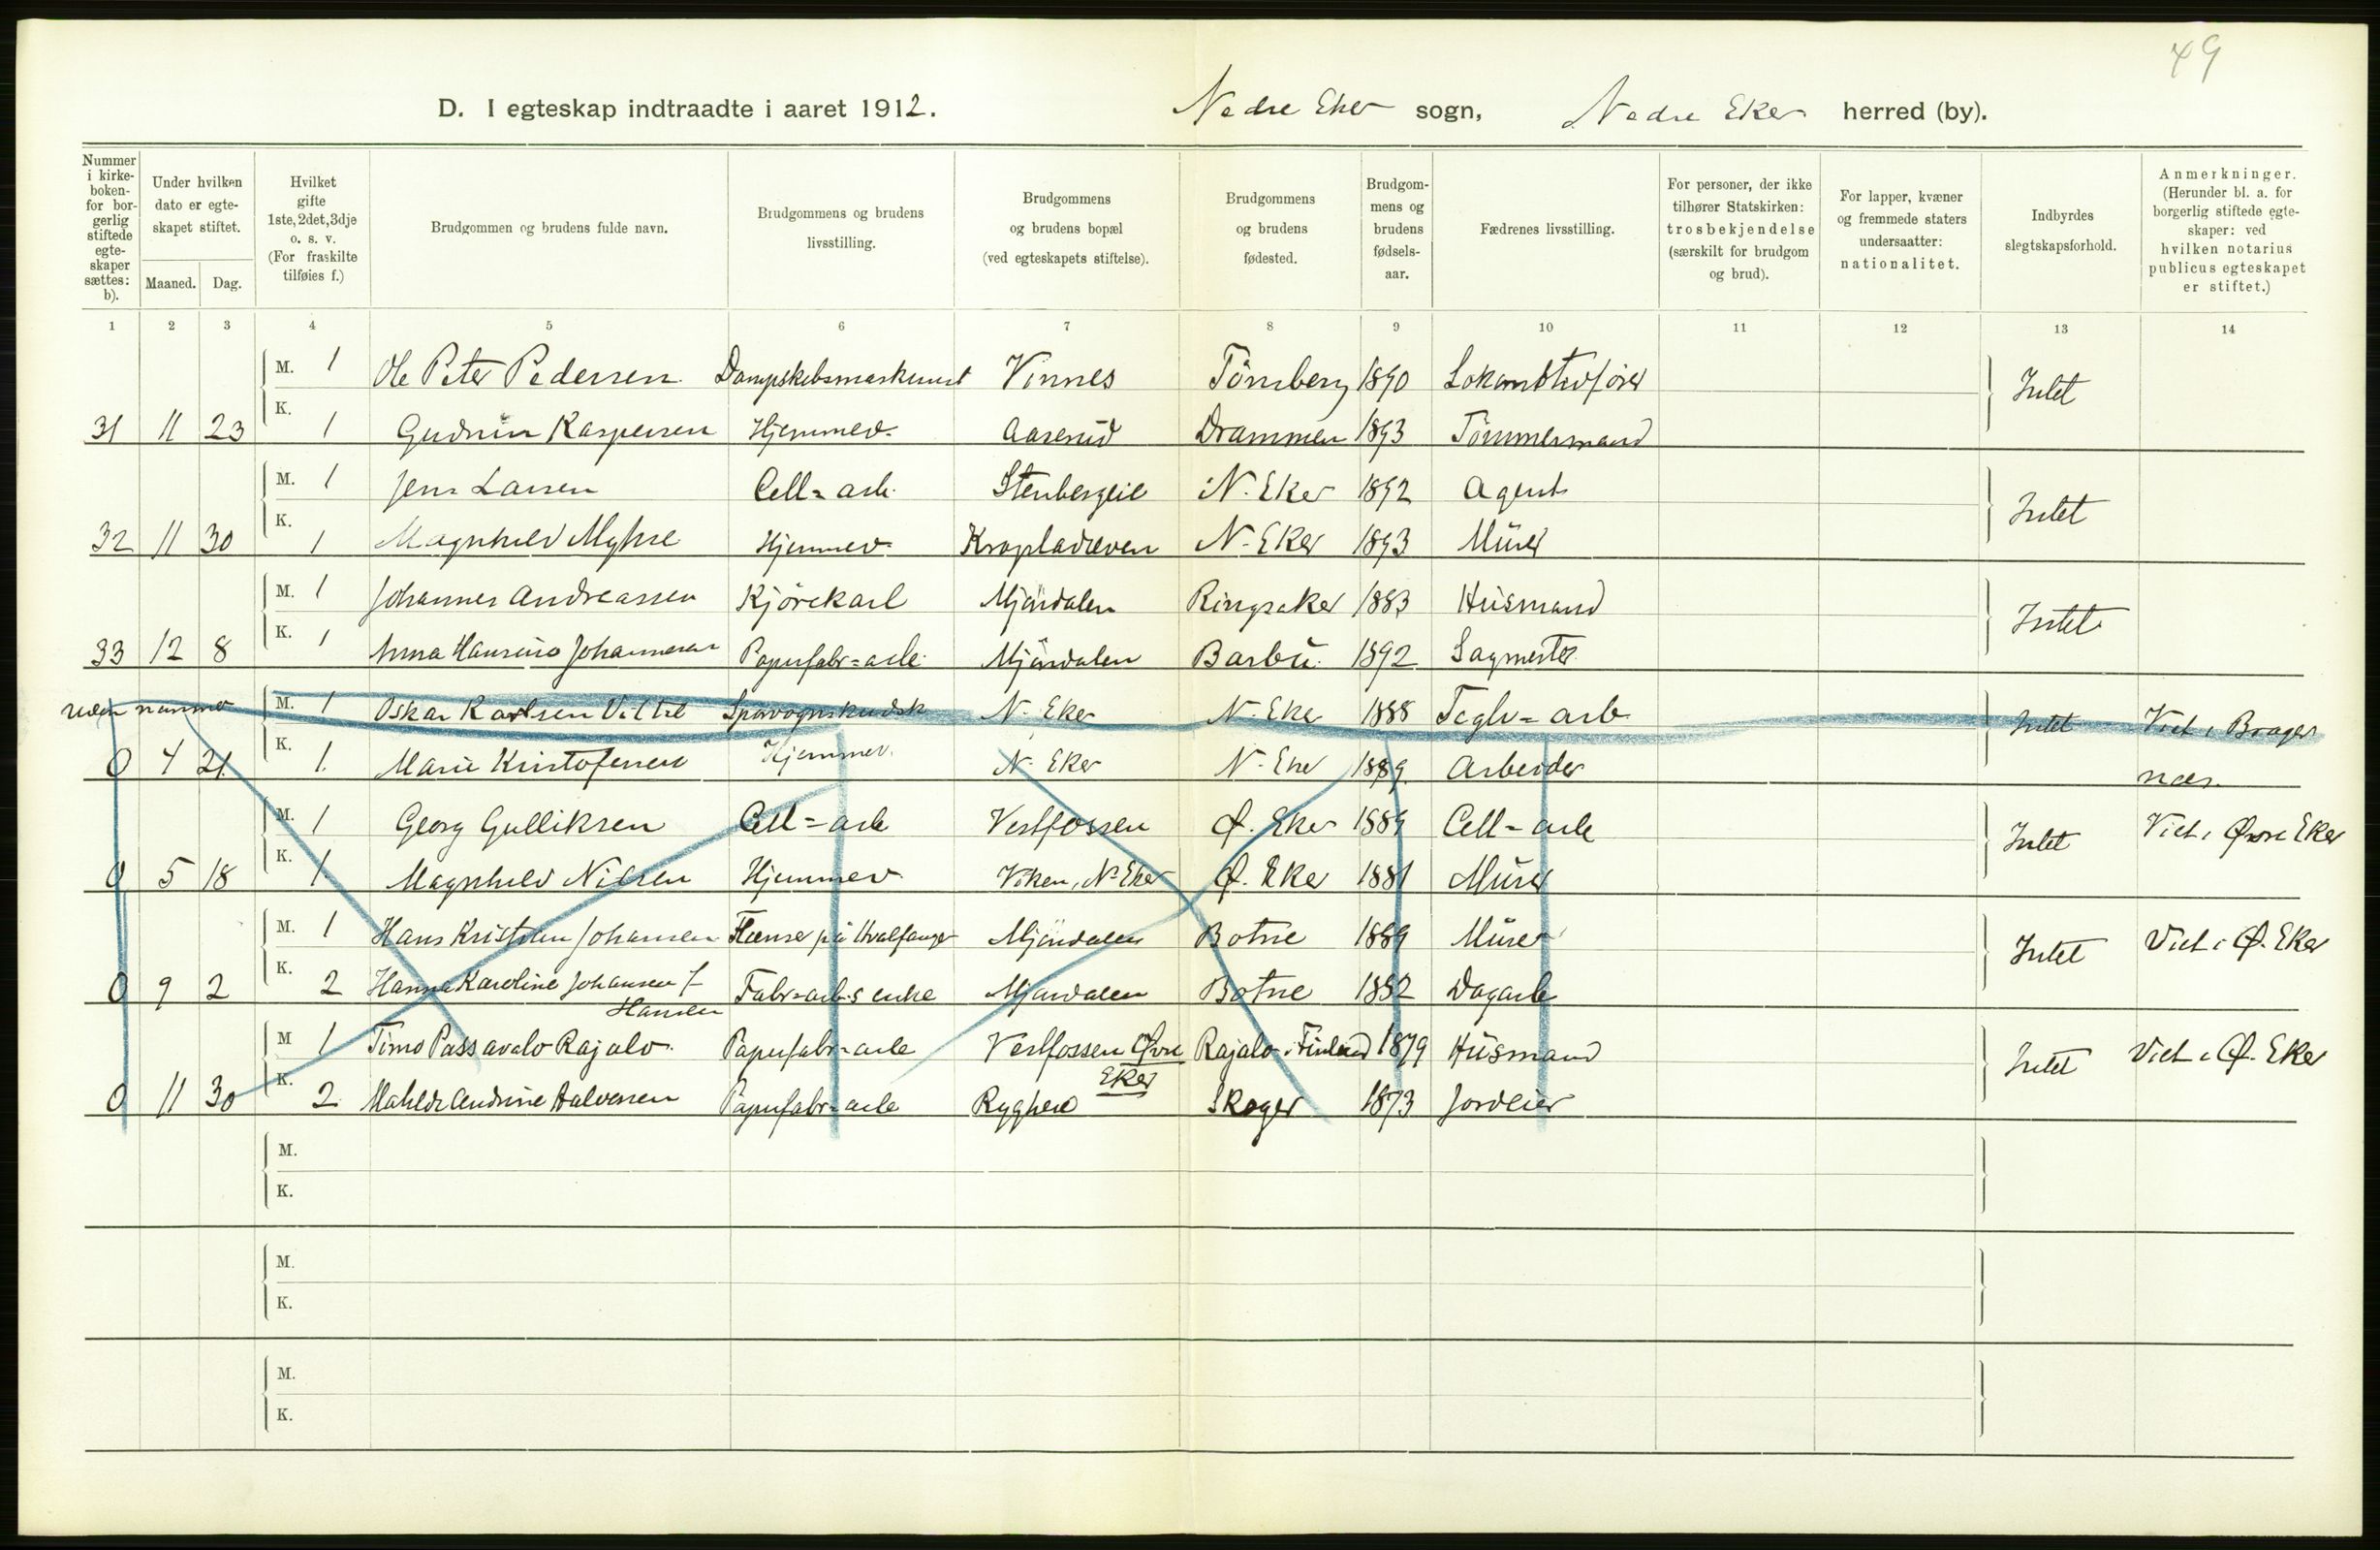 49
D. I egteskap indtraadte i aaret 1912. Nedre Eker sogn, Nedre Eker herred (by).
Nummer i kirke-boken- for bor-gerlig stiftede egte-skaper sættes: b).
Under hvilken dato er egte-skapet stiftet.
Maaned. Dag.
Hvilket gifte 1ste, 2det, 3dje o. s. v. (For fraskilte tilføies f.)
Brudgommen og brudens fulde navn.
Brudgommens og brudens livsstilling.
Brudgommens og brudens bopæl (ved egteskapets stiftelse).
Brudgommens og brudens fødested.
Brudgom-mens og brudens fødsels-aar.
Fædrenes livsstilling.
For personer, der ikke tilhører Statskirken: trosbekjendelse (særskilt for brudgom og brud).
For lapper, kvæner og fremmede staters undersaatter: nationalitet.
Indbyrdes slegtskapsforhold.
Anmerkninger. (Herunder bl. a. for borgerlig stiftede egte-skaper: ved hvilken notarius publicus egteskapet er stiftet.)
1 2 3 4 5 6 7 8 9 10 11 12 13 14
M. 1 Ole Peter Pedersen Dampskibsmaskinist Vinnes Tönsberg 1890 Lokomotivförer Intet
31 11 23 K. 1 Gudrun Kaspersen Hjemmev. Aaserud Drammen 1893 Tömmermand
M. 1 Jens Larsen Cell=arb. Stenbergeie N. Eker 1892 Agent Intet
32 11 30 K. 1 Magnhild Myhre Hjemmev. N. Eker 1893 Murer
M. 1 Johannes Andreassen Kjörekarl Mjöndalen Ringsaker 1883 Husmand Intet
33 12 8 K. 1 Anna Johannesen Papirfabr=arb. Mjöndalen Barbu. 1892 Sagmester
uden nummer M. 1 Oskar Karlsen N. Eker N. Eker 1888 Teglv=arb Intet Viet i Brager
0 4 21. K. 1. Marie Kristofersen Hjemmev. N. Eker N. Eker 1889. Arbeider næs.
M. 1 Georg Gulliksen Cell=arb Vestfossen Ø. Eker 1889 Cell=arb Intet Viet i Øvre Eker
0 5 18 K. 1. Magnhild Nilsen Hjemmev Viken, N. Eker Ø. Eker 1881 Murer
M. 1 Hans Kristian Johansen på Hvalfanger Mjöndalen Botne 1889 Murer Intet Viet i Ø. Eker
0 9 2 K. 2 Hanna Karoline Johansen f. Fabr=arb.s enke Mjöndalen Botne 1882 Dagarb
Hansen
M 1 Timo Passavalo Rajalo. Papirfabr=arb Vestfossen Øvre Rajalo i Finland 1879 Husmand Intet Viet i Ø. Eker
Eker
0 11 30 K. 2. Andrine Halvorsen Papirfabr=arb Ryghero Skoger 1873 Jordeier
M.
K.
M.
K.
M.
K.